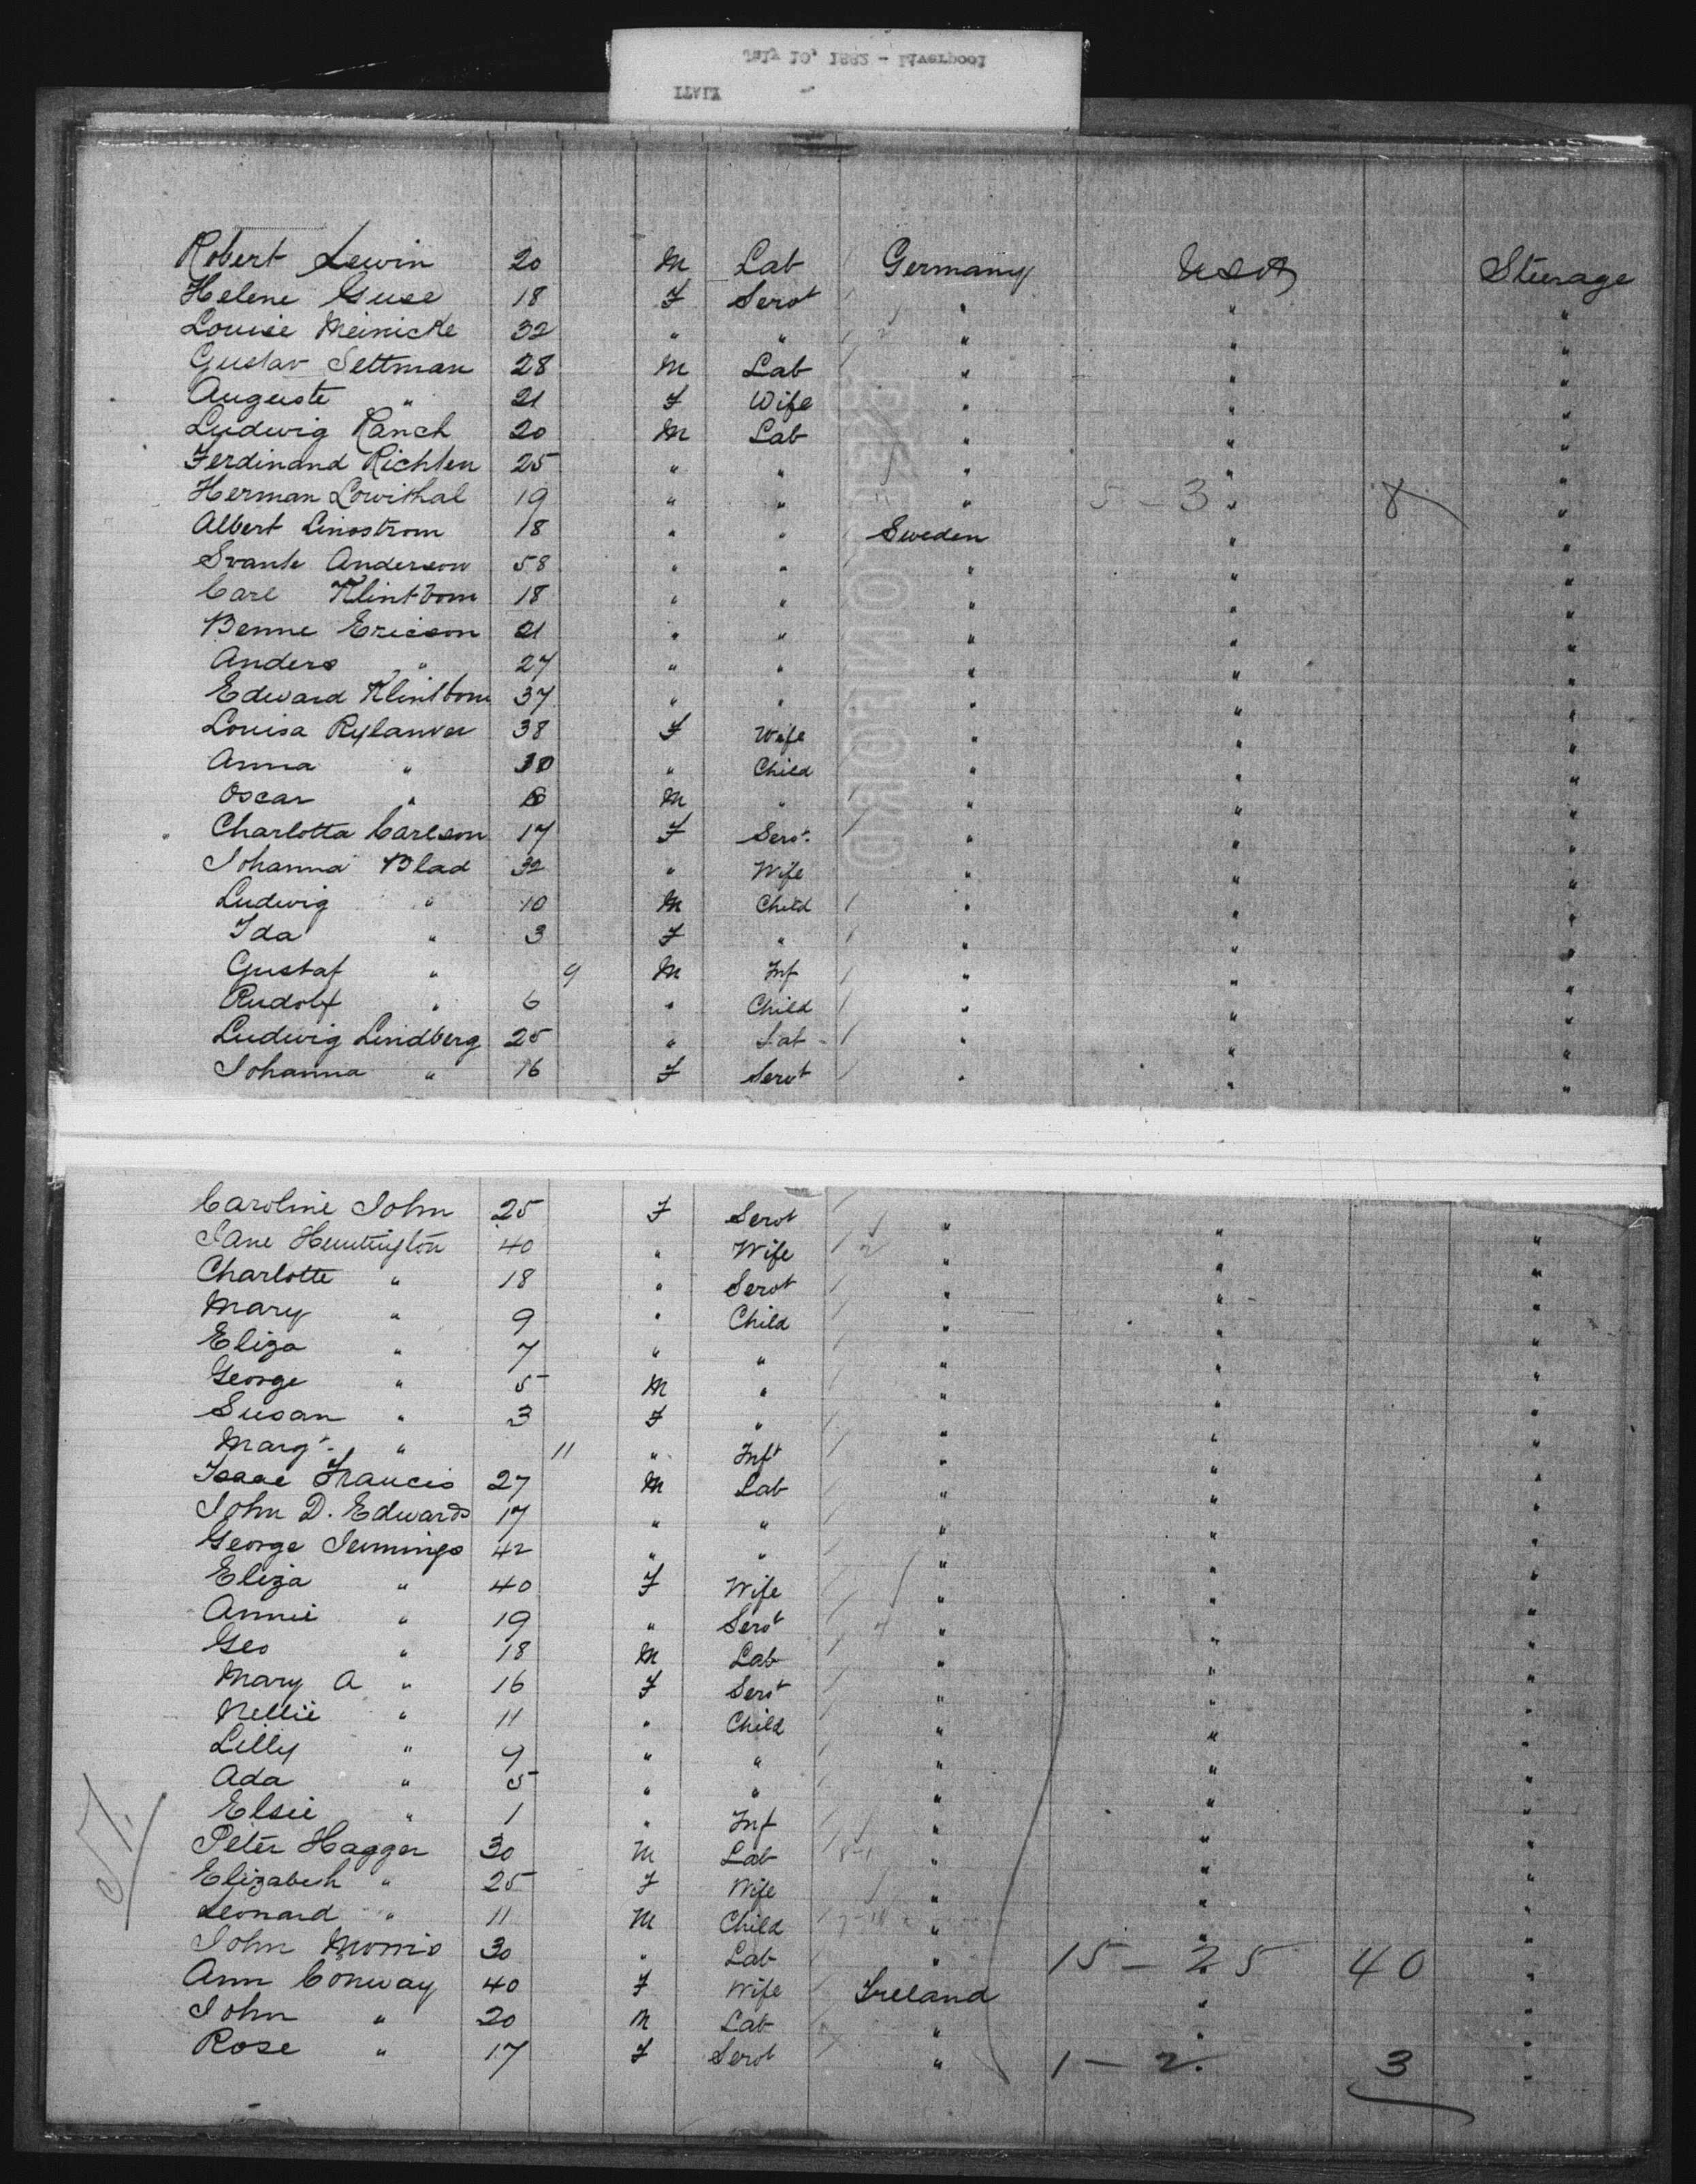 July 10, 1882 - Liverpool
Robert Lewin 20 M Lab Germany USA Steerage
Helene Guse 18 F Servt " " "
Louise Meinicke 32 " " " " "
Gustav Settman 28 M Lab " " "
Auguste " 21 F Wife " " "
Ludwig Ranch 20 M Lab " " "
Ferdinand Richten 25 " " " " "
Herman Lowithal 19 " " " 5 - 3 " 8 "
Albert Linostrom 18 " " Sweden " "
Svante Anderson 58 " " " " "
Carl Klintbom 18 " " " " "
Benne Ericson 21 " " " " "
Anders " 27 " " " " "
Edward Klintbom 37 " " " " "
Louisa Rylanver 38 F Wife " " "
Anna " 10 " Child " " "
Oscar " M " " " "
Charlotta Carlson 17 F Servt " " "
Johanna Blad 32 " Wife " " "
Ludwig " 10 M Child " " "
Ida " 3 F " " " "
Gustaf " 9 M Inf " " "
Rudolf " 6 " Child " " "
Ludwig Lindberg 25 " Lab " " "
Johanna " 16 F Servt " " "
Caroline John 25 F Servt " " "
Jane Huntington 40 " Wife " " "
Charlotte " 18 " Servt " " "
Mary " 9 " Child " " "
Eliza " 7 " " " " "
George " 5 M " " " "
Susan " 3 F " " " "
Margt " 11 " Inft " " "
Isaac Francis 27 M Lab " " "
John D. Edwards 17 " " " " "
George Jennings 42 " " " " "
Eliza " 40 F Wife " " "
Annie " 19 " Servt " " "
Geo " 18 M Lab " " "
Mary A " 16 F Servt " " "
Nellie " 11 " Child " " "
Lilly " 9 " " " " "
Ada " 5 " " " " "
Elsie " 1 " Inf " " "
Peter Hagger 30 M Lab " " "
Elizabeth " 25 F Wife " " "
Leonard " 11 M Child " " "
John Morris 30 " Lab " 15 - 25 40 "
Ann Conway 40 F Wife Ireland " "
John " 20 M Lab " " "
Rose " 17 F Servt " 1 - 2 3 "